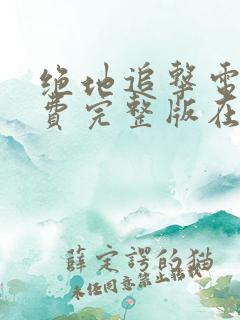 绝地追击电
费完整版在
薛定谔的猫
未经同意禁止转载